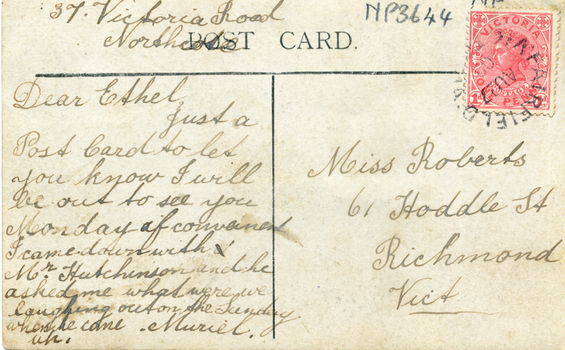 37. Victoria Road
Northcote
NP3644
POST CARD.
VICTORIA
FAIRFIELD
Dear Ethel,
Just a
Post Card to let
you know I will
be out to see you
Monday if convenient
I came down with
Mr Hutchinson and he
asked me what were we
laughing out on the Sunday
when he came
up. Muriel.
Miss Roberts
61 Hoddle St
Richmond
Vict